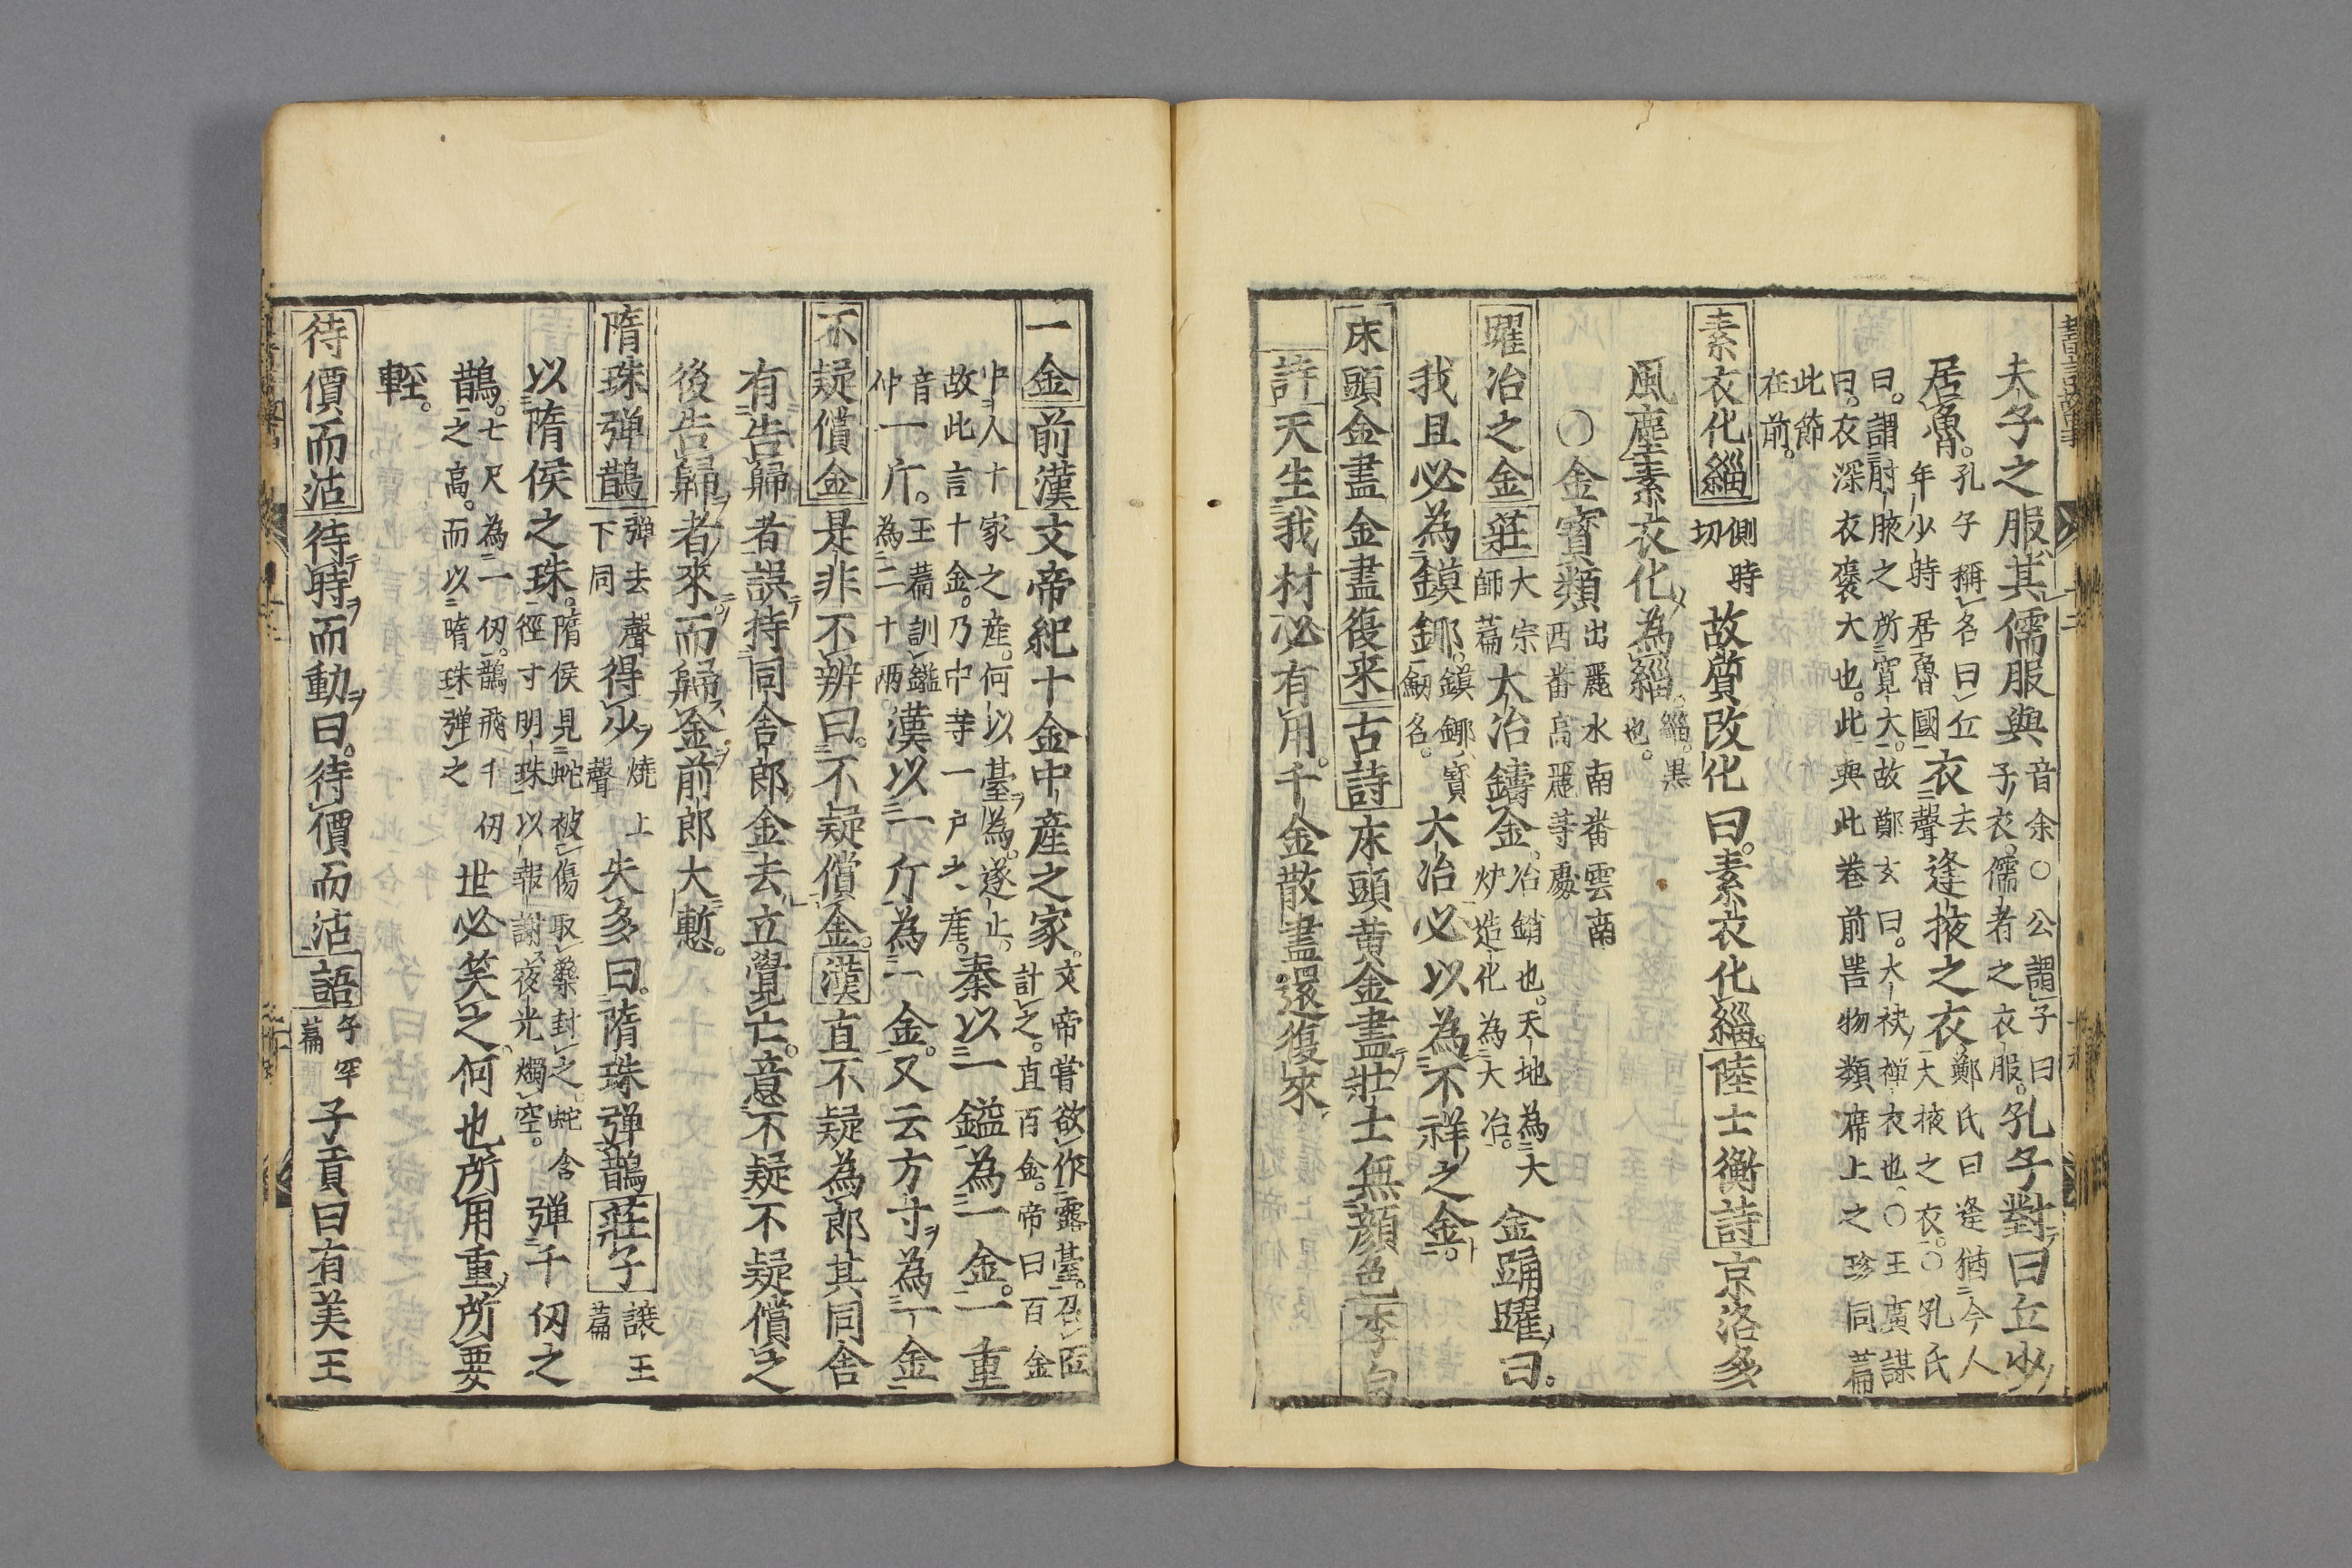 夫子之服其儒服與音余○公謂子曰子衣儒者之衣服孔子對曰丘少
居魯孔子稱名曰丘年少時居魯國衣去聲逢掖之衣鄭氏曰逢猶今人大掖之衣○孔氏
曰謂肘腋之所寬大故鄭玄曰大袂禅衣也○王廣謀曰衣深衣褒大也此與此巻前器物類席上之珍同篇
此節在前
素衣化緇側時切故質改化曰素衣化緇陸士衡詩京洛多
風塵素衣化為緇緇黒也
○金寳類出麗水南番雲南西番高麗等處
躍冶之金莊大宗師篇大冶鑄金冶銷也天地為大炉造化為大冶金踊躍曰
我且必為鏌鋣鏌鋣寳劔名大冶必以為不祥之金
床頭金盡金盡復来古詩床頭黄金盡壮士無顔色李白
詩天生我材必有用千金散盡還復來
一金前漢文帝紀十金中産之家文帝嘗欲作露臺召匠計之直百金帝曰百金
中人十家之産何以臺為遂止故此言十金乃中等一戸之産秦以一鎰為一金一重
音仲一斤王篇訓鎰為二十两漢以一斤為一金又云方寸為一金
不疑償金是非不辨曰不疑償金漢直不疑為郎其同舎
有告歸者誤持同舎郎金去立覺亡意不疑不疑償之
後告歸者來而歸金前郎大慙
隋珠弾鵲弾去聲下同得少燒上聲失多曰隋珠弾鵲莊子譲王篇
以隋侯之珠隋侯見蛇被傷取藥封之蛇含徑寸明珠以報謝夜光燭空弾千仭之
鵲七尺為一仭鵲飛千仭之高而以隋珠弾之世必笑之何也所用重所要
輕
待價而沽待時而動曰待價而沽語子罕篇子貢曰有美王